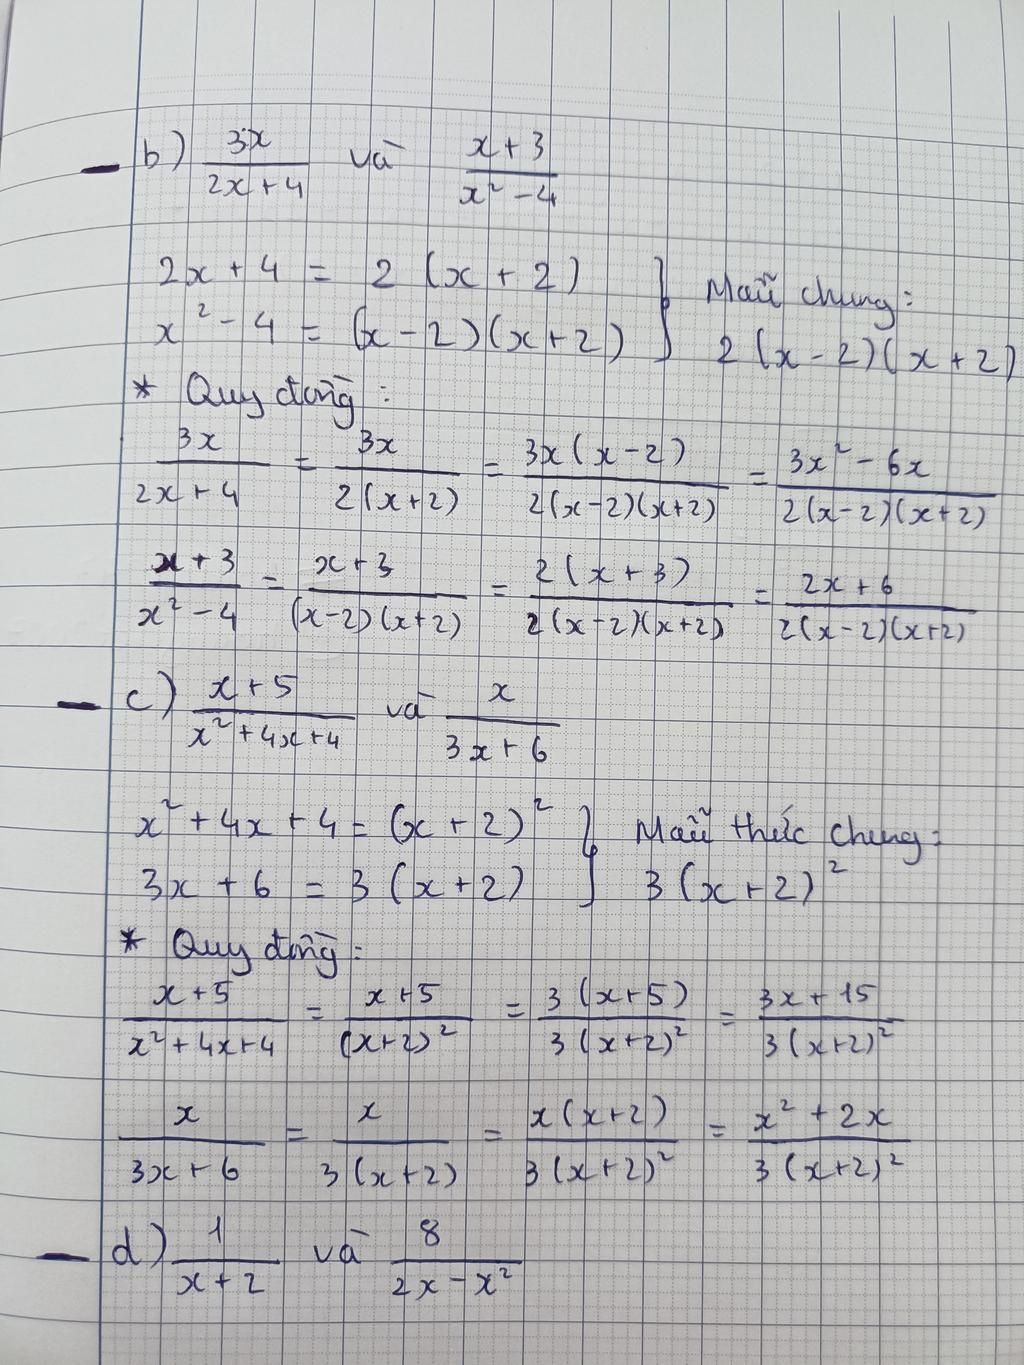 b) 3x/(2x+4) và (x+3)/(x²-4)
2x + 4 = 2 (x + 2)
x² - 4 = (x - 2)(x + 2)
} Mẫu chung:
2(x - 2)(x + 2)
* Quy đồng:
3x/(2x+4) = 3x/(2(x+2)) = 3x(x-2)/(2(x-2)(x+2)) = (3x² - 6x)/(2(x-2)(x+2))
(x+3)/(x²-4) = (x+3)/((x-2)(x+2)) = 2(x+3)/(2(x-2)(x+2)) = (2x+6)/(2(x-2)(x+2))
c) (x+5)/(x²+4x+4) và x/(3x+6)
x² + 4x + 4 = (x + 2)²
3x + 6 = 3 (x + 2)
} Mẫu thức chung:
3(x + 2)²
* Quy đồng:
(x+5)/(x²+4x+4) = (x+5)/(x+2)² = 3(x+5)/(3(x+2)²) = (3x+15)/(3(x+2)²)
x/(3x+6) = x/(3(x+2)) = x(x+2)/(3(x+2)²) = (x²+2x)/(3(x+2)²)
d) 1/(x+2) và 8/(2x-x²)